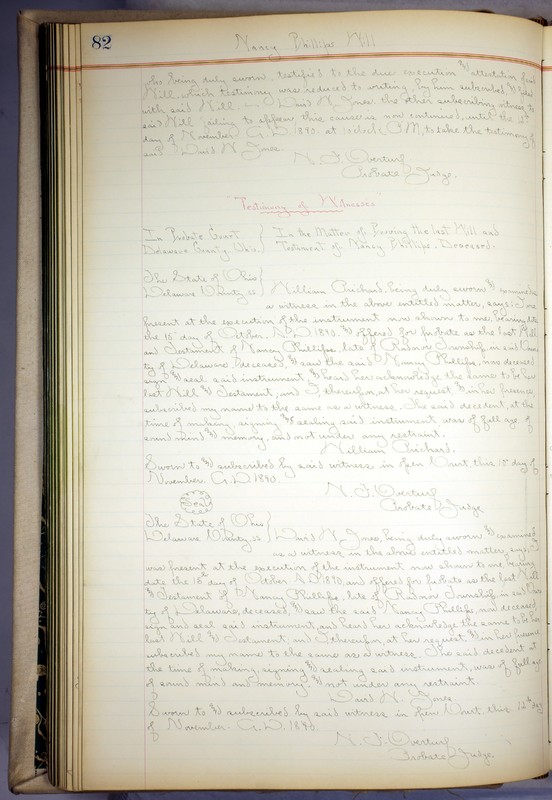 82
Nancy Phillips Will
He being duly sworn, testified to the due execution & attestation of said
Will, which testimony was reduced to writing, by him subscribed & filed
with said Will. David W. Jones the other subscribing witness to
said Will failing to appear this cause is now continued, until the 12th
day of November A.D. 1890. at 1 o'clock, P.M, to take the testimony of
said David W. Jones.
N. F. Overturf
Probate Judge.
"Testimony of Witnesses"
In Probate Court } In the Matter of Proving the last Will and
Delaware County Ohio. } Testament of Nancy Phillips. Deceased.
The State of Ohio }
Delaware County, ss } William Prichard, being duly sworn & examined as
a witness in the above entitled matter, says: I was
present at the execution of the instrument now shown to me, bearing date
the 15th day of October, A.D. 1890, & offered for probate as the last Will
and Testament of Nancy Phillips, late of Radnor Township, in said Coun-
ty of Delaware, deceased, I saw the said Nancy Phillips, now deceased
sign & seal said instrument, & heard her acknowledge the same to be her
last Will & Testament, and I, thereupon, at her request, & in her presence
subscribed my name to the same as a witness. The said decedent, at the
time of making, signing & sealing said instrument, was of full age of
sound mind & memory, and not under any restraint.
William Prichard.
Sworn to & subscribed by said witness, in open Court, this 10th day of
November. A.D. 1890.
N. F. Overturf
Probate Judge
Seal
The State of Ohio }
Delaware County, ss } David W. Jones, being duly sworn & examined
as a witness in the above entitled matter, says, I
was present at the execution of the instrument now shown to me, bearing
date the 15th day of October A.D. 1890, and offered for probate as the last Will
& Testament of Nancy Phillips, late of Radnor Township, in said Coun-
ty of Delaware, deceased, I saw the said Nancy Phillips, now deceased
sign and seal said instrument, and heard her acknowledge the same to be her
last Will & Testament, and I thereupon, at her request, & in her presence
subscribed my name to the same as a witness. The said decedent at
the time of making, signing, & sealing said instrument, was of full age
of sound mind and memory, & not under any restraint.
David W. Jones.
Sworn to & subscribed by said witness in open Court, this 12th day
of November. A.D. 1890.
N. F. Overturf
Probate Judge